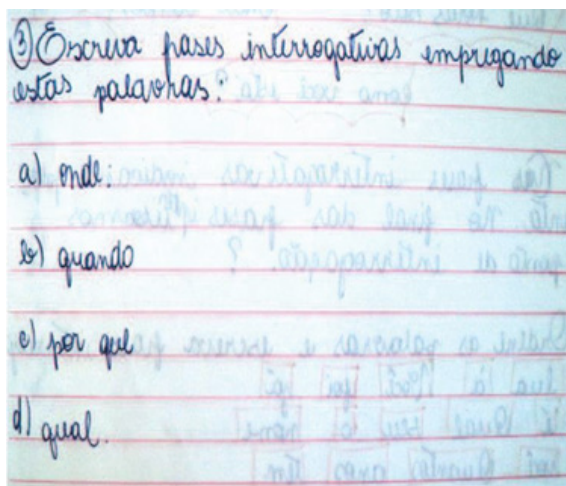 ③ Escreva frases interrogativas empregando
estas palavras:
a) onde:
b) quando
c) por que
d) qual.